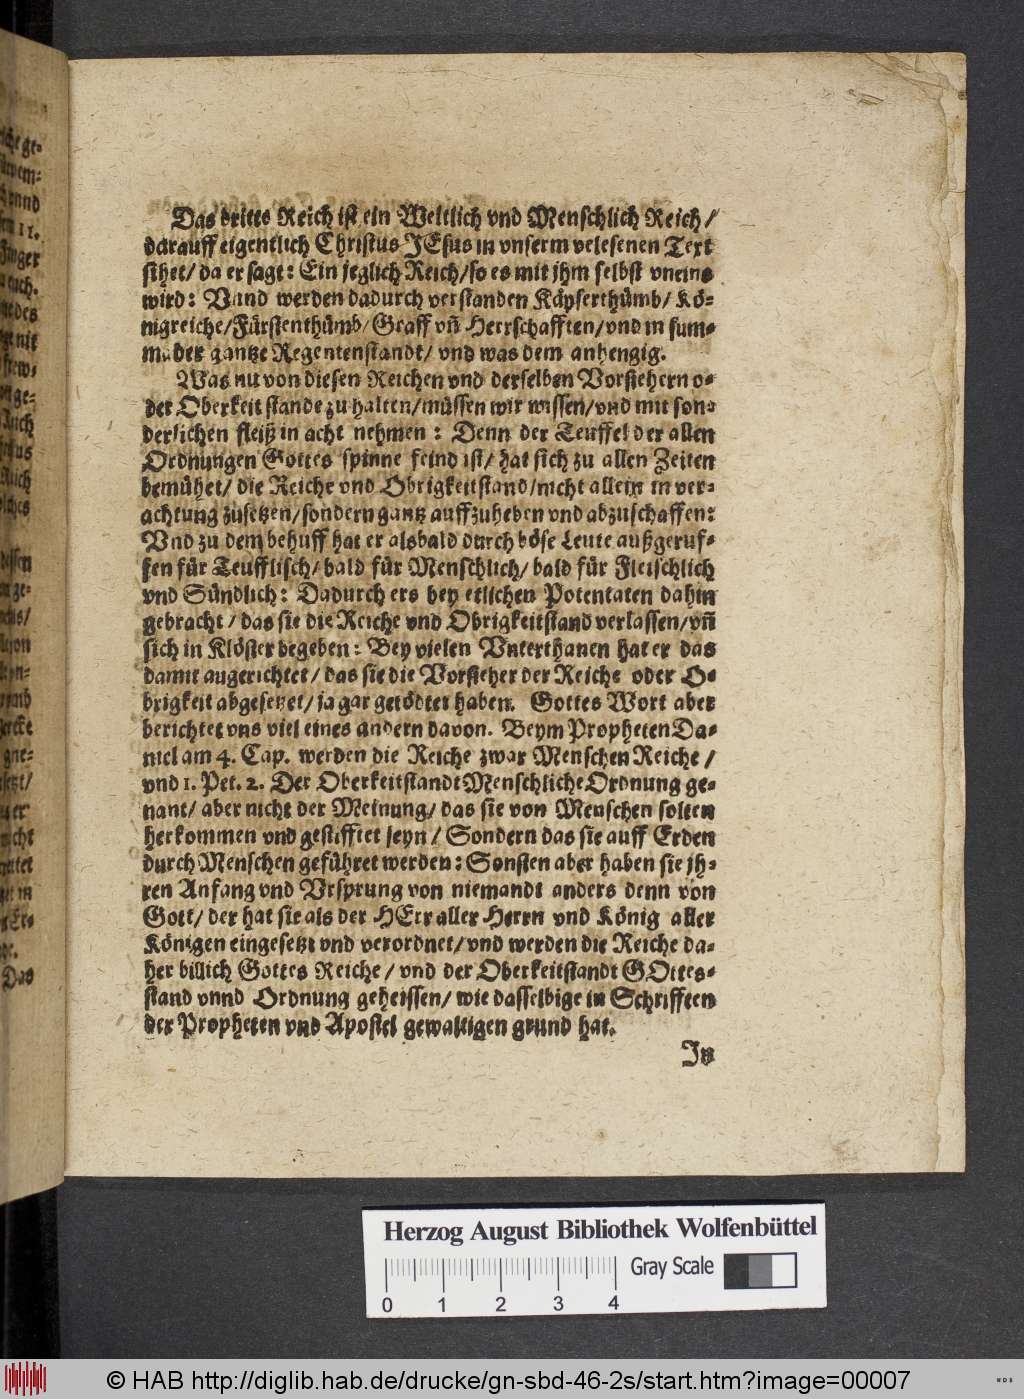 Das dritte Reich ist ein Weltlich vnd Menschlich Reich/
darauff eigentlich Christus JEsus in vnserm velesenen Text
sihet/ da er sagt: Ein jeglich Reich/ so es mit jhm selbst vneins
wird: Vnnd werden dadurch verstanden Käyserthümb/ Kö-
nigreiche/ Fürstenthümb/ Graff vñ Herrschafften/ vnd in sum-
ma der gantze Regentenstandt/ vnd was dem anhengig.
Was nu von diesen Reichen vnd derselben Vorstehern o-
der Oberkeit stande zu halten/ müssen wir wissen/ vnd mit son-
derlichen fleiß in acht nehmen: Denn der Teuffel der allen
Ordnungen Gottes spinne feind ist/ hat sich zu allen Zeiten
bemühet/ die Reiche vnd Obrigkeitstand/ nicht allein in ver-
achtung zusetzen/ sondern gantz auffzuheben vnd abzuschaffen:
Vnd zu dem behuff hat er alsbald durch böse Leute außgeruf-
fen für Teufflisch/ bald für Menschlich/ bald für Fleischlich
vnd Sündlich: Dadurch ers bey etlichen Potentaten dahin
gebracht/ das sie die Reiche vnd Obrigkeitstand verlassen/ vñ
sich in Klöster begeben: Bey vielen Vnterthanen hat er das
damit angerichtet/ das sie die Vorsteher der Reiche oder O-
brigkeit abgesetzet/ ja gar getödtet haben. Gottes Wort aber
berichtet vns viel eines andern davon. Beym Propheten Da-
niel am 4. Cap. werden die Reiche zwar Menschen Reiche/
vnd 1. Pet. 2. Der Oberkeitstandt Menschliche Ordnung ge-
nant/ aber nicht der Meinung/ das sie von Menschen solten
herkommen vnd gestifftet seyn/ Sondern das sie auff Erden
durch Menschen geführet werden: Sonsten aber haben sie jh-
ren Anfang vnd Vrsprung von niemandt anders denn von
Gott/ der hat sie als der HErr aller Herrn vnd König aller
Königen eingesetzt vnd verordnet/ vnd werden die Reiche da-
her billich Gottes Reiche/ vnd der Oberkeitstandt GOttes-
stand vnnd Ordnung geheissen/ wie dasselbige in Schrifften
der Propheten vnd Apostel gewaltigen grund hat.
Jn
Das
Herzog August Bibliothek Wolfenbüttel
Gray Scale
0 1 2 3 4
© HAB http://diglib.hab.de/drucke/gn-sbd-46-2s/start.htm?image=00007